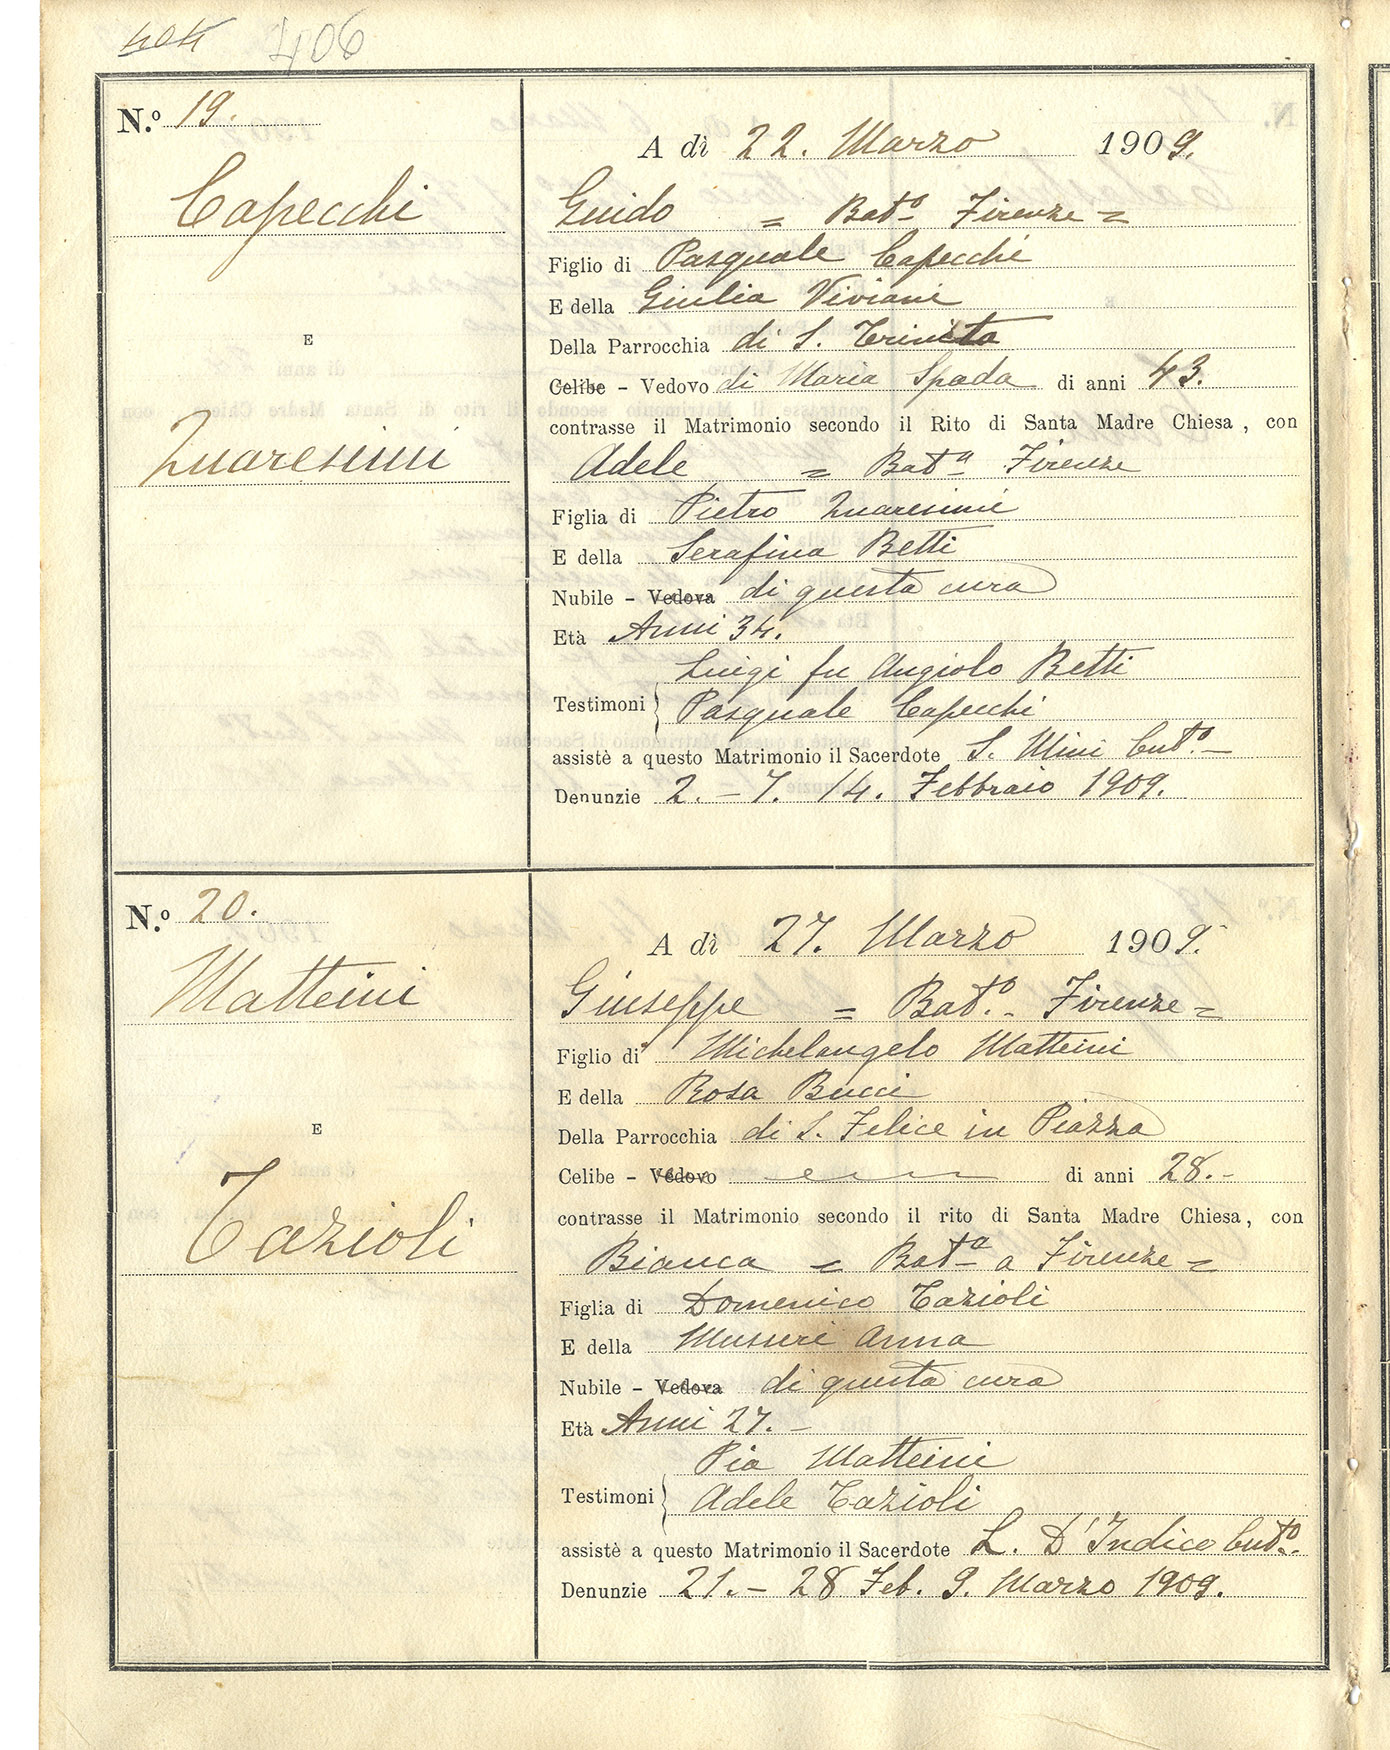 404 406
N.º 19.
Capecchi
E
Quaresimi
A dì 22. Marzo 1909.
Guido = Batº Firenze =
Figlio di Pasquale Capecchi
E della Giulia Viviani
Della Parrocchia di S. Trinita
Celibe - Vedovo di Maria Spada di anni 43.
contrasse il Matrimonio secondo il Rito di Santa Madre Chiesa, con
Adele = Batª Firenze
Figlia di Pietro Quaresimi
E della Serafina Betti
Nubile - Vedova di questa cura
Età Anni 34.
Testimoni Luigi fu Angiolo Betti
Pasquale Capecchi
assistè a questo Matrimonio il Sacerdote S. Mini Cutº.-
Denunzie 2. - 7. 14. Febbraio 1909.
N.º 20.
Matteini
E
Tazioli
A dì 27. Marzo 1909.
Giuseppe = Batº.- Firenze =
Figlio di Michelangelo Matteini
E della Rosa Bucci
Della Parrocchia di S. Felice in Piazza
Celibe - Vedovo di anni 28.-
contrasse il Matrimonio secondo il rito di Santa Madre Chiesa, con
Bianca = Batª a Firenze =
Figlia di Domenico Tazioli
E della Anna
Nubile - Vedova di questa cura
Età Anni 27.-
Testimoni Pia Matteini
Adele Tazioli
assistè a questo Matrimonio il Sacerdote L. D'Indico Cutº.
Denunzie 21. - 28 Feb. 9. Marzo 1909.